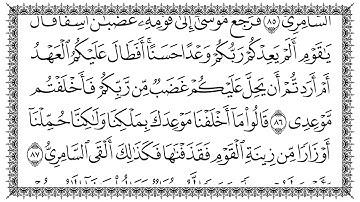 ٱلسَّامِرِيُّ ٨٥ فَرَجَعَ مُوسَىٰٓ إِلَىٰ قَوْمِهِۦ غَضْبَٰنَ أَسِفًا قَالَ
يَٰقَوْمِ أَلَمْ يَعِدْكُمْ رَبُّكُمْ وَعْدًا حَسَنًا أَفَطَالَ عَلَيْكُمُ ٱلْعَهْدُ
أَمْ أَرَدتُّمْ أَن يَحِلَّ عَلَيْكُمْ غَضَبٌ مِّن رَّبِّكُمْ فَأَخْلَفْتُم
مَّوْعِدِى ٨٦ قَالُوا۟ مَآ أَخْلَفْنَا مَوْعِدَكَ بِمَلْكِنَا وَلَٰكِنَّا حُمِّلْنَآ
أَوْزَارًا مِّن زِينَةِ ٱلْقَوْمِ فَقَذَفْنَٰهَا فَكَذَٰلِكَ أَلْقَى ٱلسَّامِرِىُّ ٨٧